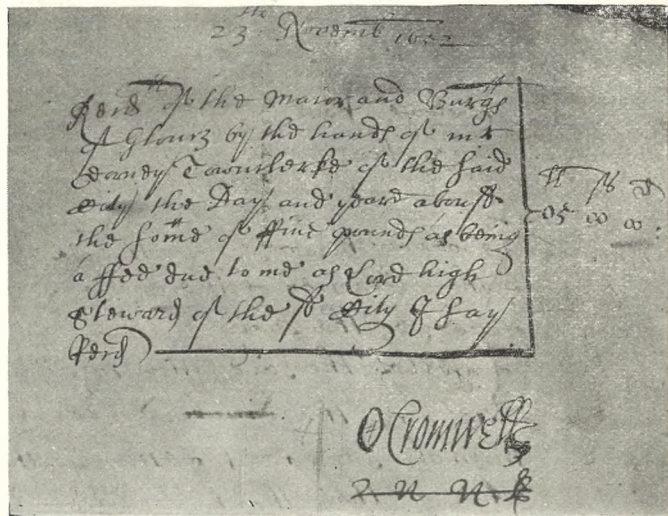 23th Novemb 1652
Recd of the Maior and Burgs
of Gloucr by the hands of mr
Dorney Townclerke of the said
City the Day and yeare above
the some of ffive pounds as being
a ffee due to me as Lord high
Steward of the sd City I say
Recd
li s d
05 00 00.
O Cromwell